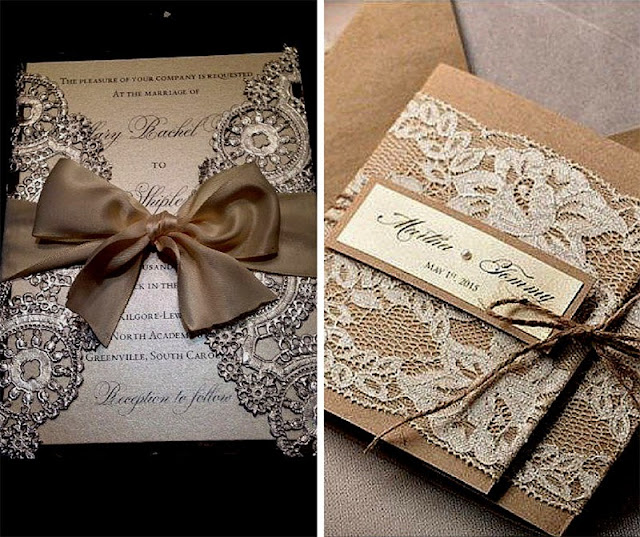 The pleasure of your company is requested
At the marriage of
Rachel
to
Shiple
in the
Kilgore-Lew
North Academ
Greenville, South Carol
Reception to follow
Martha Tommy
May 1st, 2015